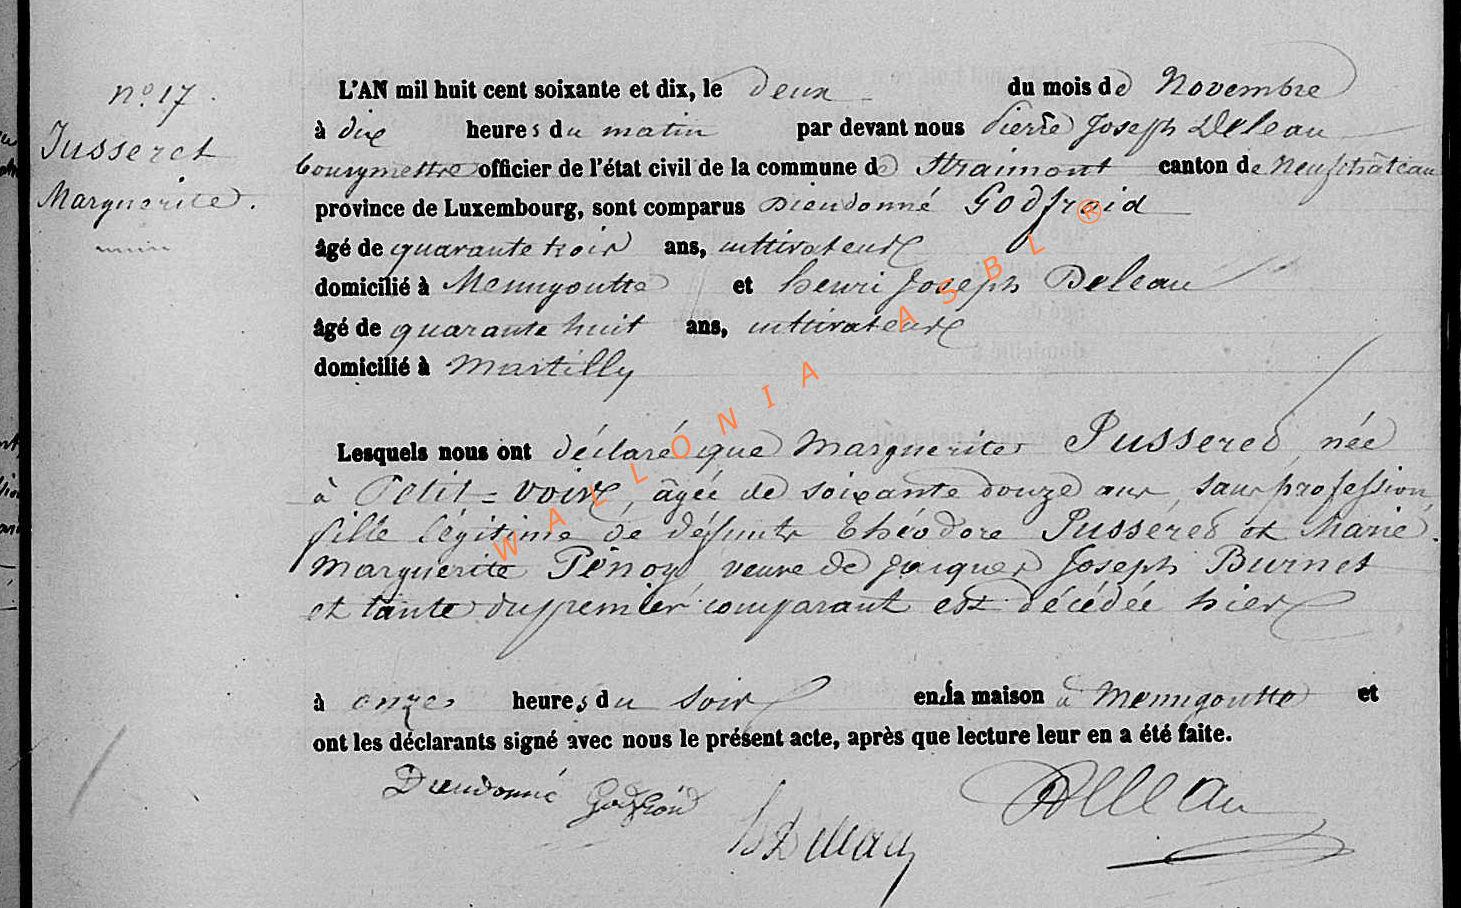 n° 17.
Jusseret
Marguerite.
L'AN mil huit cent soixante et dix, le deux du mois de Novembre
à dix heures du matin par devant nous Pierre Joseph Deleau
bourgmettre officier de l'état civil de la commune de Straimont canton de Neufchâteau
province de Luxembourg, sont comparus Dieudonné Godfroid
âgé de quarante trois ans, cultivateur
domicilié à Menugoutte et henri Joseph Deleau
âgé de quarante huit ans, cultivateur
domicilié à Martilly
Lesquels nous ont déclaré que Marguerite Jusseret, née
à Petit-voir, âgée de soixante douze ans, sans profession,
fille légitime de défunts théodore Jusséret et Marie
Marguerite Pénoy, veuve de Jacques Joseph Burnet
et tante du premier comparant est décédée hier
à onze heures du soir en sa maison à Menugoutte et
ont les déclarants signé avec nous le présent acte, après que lecture leur en a été faite.
Dieudonné Godfroid
hJ Deleau
Deleau
WALLONIA ASBL ®